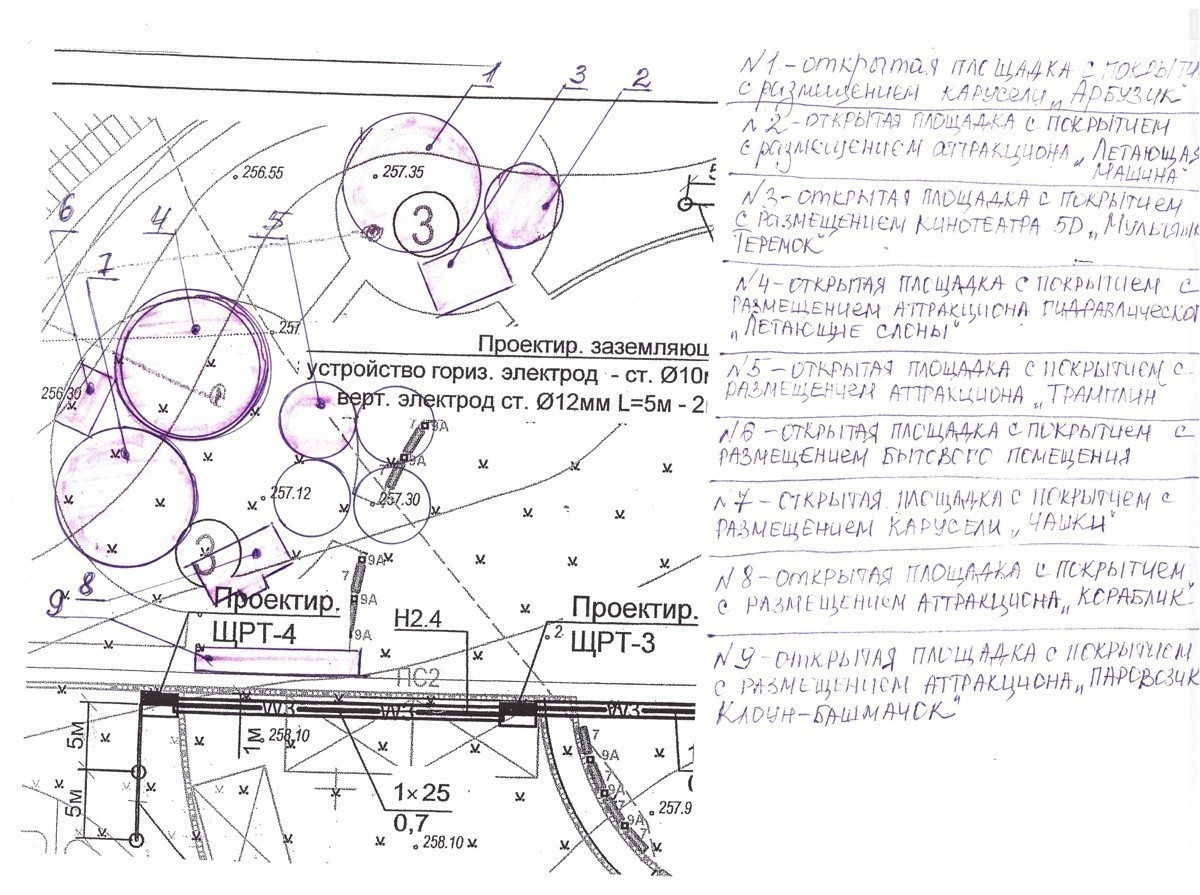 1
3
2
256.55
257.35
3
6
4
5
7
257
256.30
Проектир. заземляющ
устройство гориз. электрод - ст. Ø10
верт. электрод ст. Ø12мм L=5м - 2
9А
7
9А
7
257.12
257.30
3
8
9
9А
7
9А
9А
Проектир.
ЩРТ-4
Н2.4
Проектир.
ЩРТ-3
2
ПС2
W3
W3
W3
5м
5м
1м
258.10
1×25
0,7
258.10
7
9А
7
9А
7
9А
7
257.9
N1 - ОТКРЫТАЯ ПЛОЩАДКА С ПОКРЫТИ
С РАЗМЕЩЕНИЕМ КАРУСЕЛИ „АРБУЗИК"
N2 - ОТКРЫТАЯ ПЛОЩАДКА С ПОКРЫТИЕМ
С РАЗМЕЩЕНИЕМ АТТРАКЦИОНА „ЛЕТАЮЩАЯ
МАШИНА"
N3 - ОТКРЫТАЯ ПЛОЩАДКА С ПОКРЫТИЕМ
С РАЗМЕЩЕНИЕМ КИНОТЕАТРА 5D „МУЛЬТЯШК
ТЕРЕМОК"
N4 - ОТКРЫТАЯ ПЛОЩАДКА С ПОКРЫТИЕМ С
РАЗМЕЩЕНИЕМ АТТРАКЦИОНА ГИДРАВЛИЧЕСКОГ
„ЛЕТАЮЩИЕ СЛОНЫ"
N5 - ОТКРЫТАЯ ПЛОЩАДКА С ПОКРЫТИЕМ С
РАЗМЕЩЕНИЕМ АТТРАКЦИОНА „ТРАМПЛИН
N6 - ОТКРЫТАЯ ПЛОЩАДКА С ПОКРЫТИЕМ С
РАЗМЕЩЕНИЕМ БЫТОВОГО ПОМЕЩЕНИЯ
N7 - ОТКРЫТАЯ ПЛОЩАДКА С ПОКРЫТИЕМ С
РАЗМЕЩЕНИЕМ КАРУСЕЛИ „ЧАШКИ"
N8 - ОТКРЫТАЯ ПЛОЩАДКА С ПОКРЫТИЕМ
С РАЗМЕЩЕНИЕМ АТТРАКЦИОНА „КОРАБЛИК"
N9 - ОТКРЫТАЯ ПЛОЩАДКА С ПОКРЫТИЕМ
С РАЗМЕЩЕНИЕМ АТТРАКЦИОНА „ПАРОВОЗИК
КЛОУН-БАШМАЧОК"